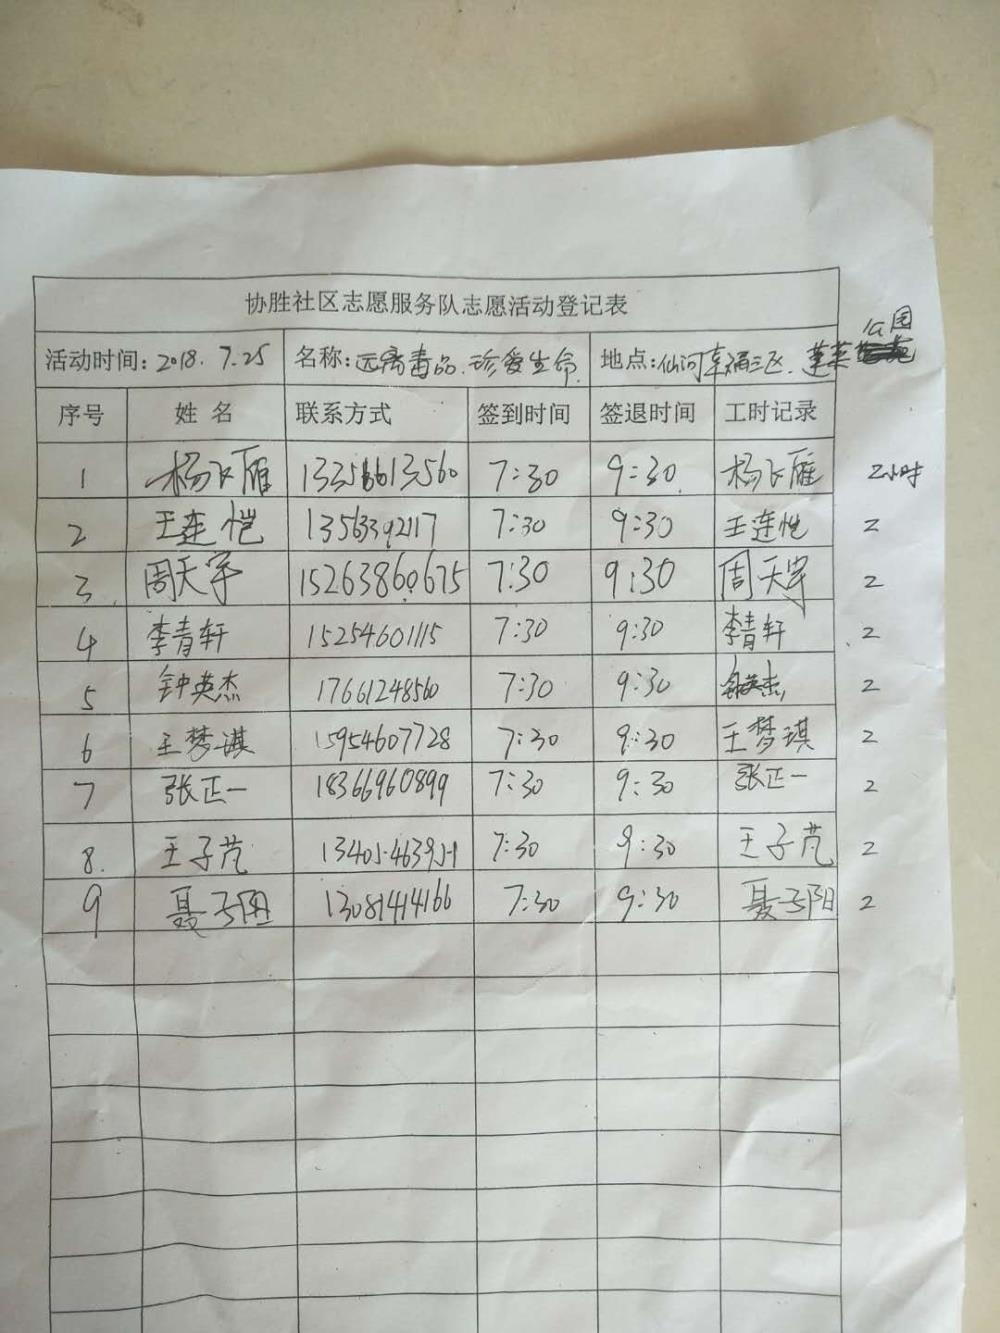 协胜社区志愿服务队志愿活动登记表
活动时间:2018.7.25 名称:远离毒品.珍爱生命 地点:仙河幸福三区.蓬莱公园
序号 姓名 联系方式 签到时间 签退时间 工时记录
1 杨飞雁 7:30 9:30 杨飞雁 2小时
2 王连恺 13563392117 7:30 9:30 王连恺 2
3 周天宇 15263860675 7:30 9:30 周天宇 2
4 李青轩 15254601115 7:30 9:30 李青轩 2
5 钟英杰 17661248560 7:30 9:30 钟英杰 2
6 王梦琪 15954607728 7:30 9:30 王梦琪 2
7 张正一 18366960899 7:30 9:30 张正一 2
8. 王子芃 7:30 9:30 王子芃 2
9 聂子阳 13081414166 7:30 9:30 聂子阳 2